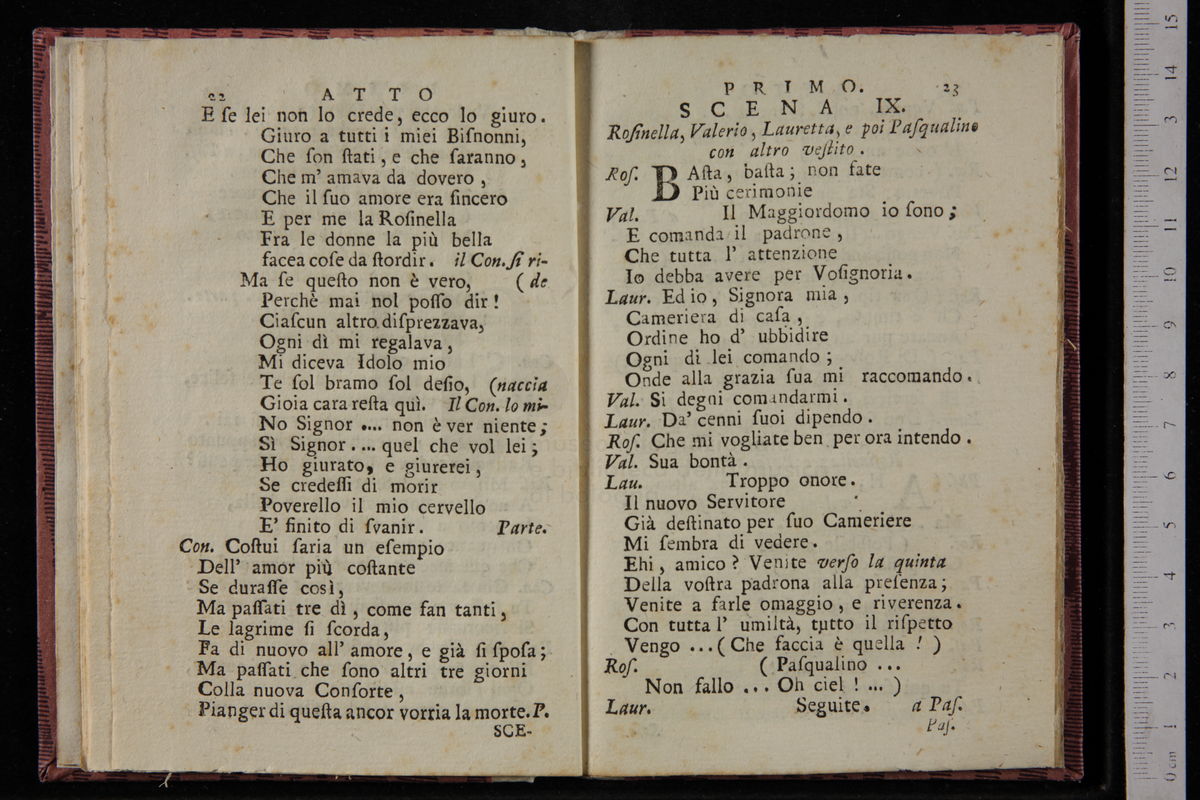 22 A T T O
E ſe lei non lo crede, ecco lo giuro.
Giuro a tutti i miei Biſnonni,
Che ſon ſtati, e che ſaranno,
Che m' amava da dovero,
Che il ſuo amore era ſincero
E per me la Roſinella
Fra le donne la più bella
facea coſe da ſtordir. il Con. ſi ri-
Ma ſe queſto non è vero, ( de
Perchè mai nol poſſo dir!
Ciaſcun altro diſprezzava,
Ogni dì mi regalava,
Mi diceva Idolo mio
Te ſol bramo ſol deſio, (naccia
Gioia cara reſta quì. Il Con. lo mi-
No Signor .... non è ver niente;
Sì Signor .... quel che vol lei;
Ho giurato, e giurerei,
Se credeſſi di morir
Poverello il mio cervello
E' finito di ſvanir. Parte.
Con. Coſtui ſaria un eſempio
Dell' amor più coſtante
Se duraſſe così,
Ma paſſati tre dì, come fan tanti,
Le lagrime ſi ſcorda,
Fa di nuovo all' amore, e già ſi ſpoſa;
Ma paſſati che ſono altri tre giorni
Colla nuova Conſorte,
Pianger di queſta ancor vorria la morte. P.
SCE-
P R I M O. 23
S C E N A IX.
Roſinella, Valerio, Lauretta, e poi Paſqualino
con altro veſtito.
Roſ. BAſta, baſta; non fate
Più cerimonie
Val. Il Maggiordomo io ſono;
E comanda il padrone,
Che tutta l' attenzione
Io debba avere per Voſignoria.
Laur. Ed io, Signora mia,
Cameriera di caſa,
Ordine ho d' ubbidire
Ogni di lei comando;
Onde alla grazia ſua mi raccomando.
Val. Si degni comandarmi.
Laur. Da' cenni ſuoi dipendo.
Roſ. Che mi vogliate ben per ora intendo.
Val. Sua bontà.
Lau. Troppo onore.
Il nuovo Servitore
Già deſtinato per ſuo Cameriere
Mi ſembra di vedere.
Ehi, amico? Venite verſo la quinta
Della voſtra padrona alla preſenza;
Venite a farle omaggio, e riverenza.
Con tutta l' umiltà, tutto il riſpetto
Vengo ... ( Che faccia è quella ! )
Roſ. ( Paſqualino ...
Non fallo ... Oh ciel ! ... )
Laur. Seguite. a Paſ.
Paſ.